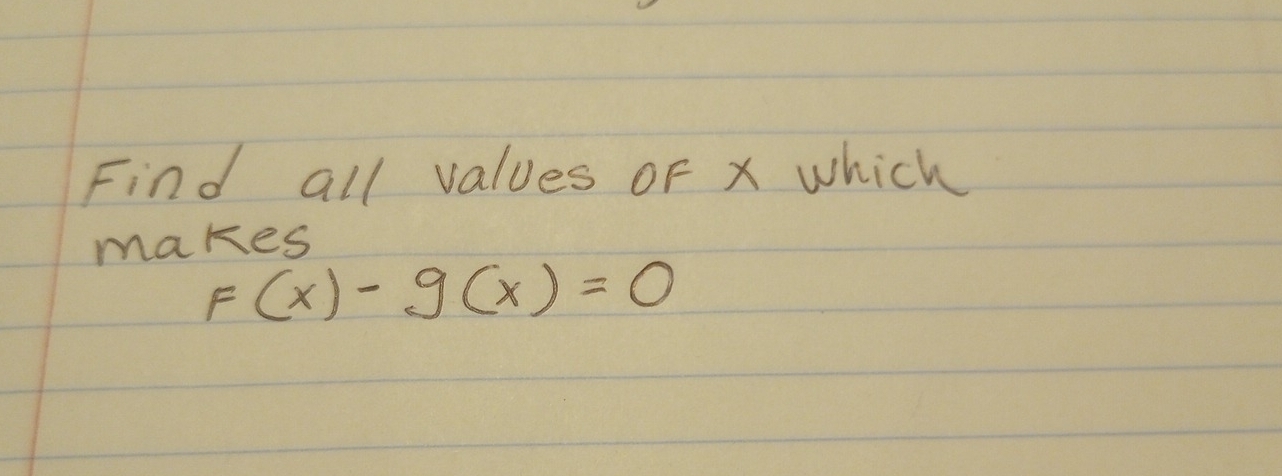 Find all values of x which
makes
F(x) - g(x) = 0